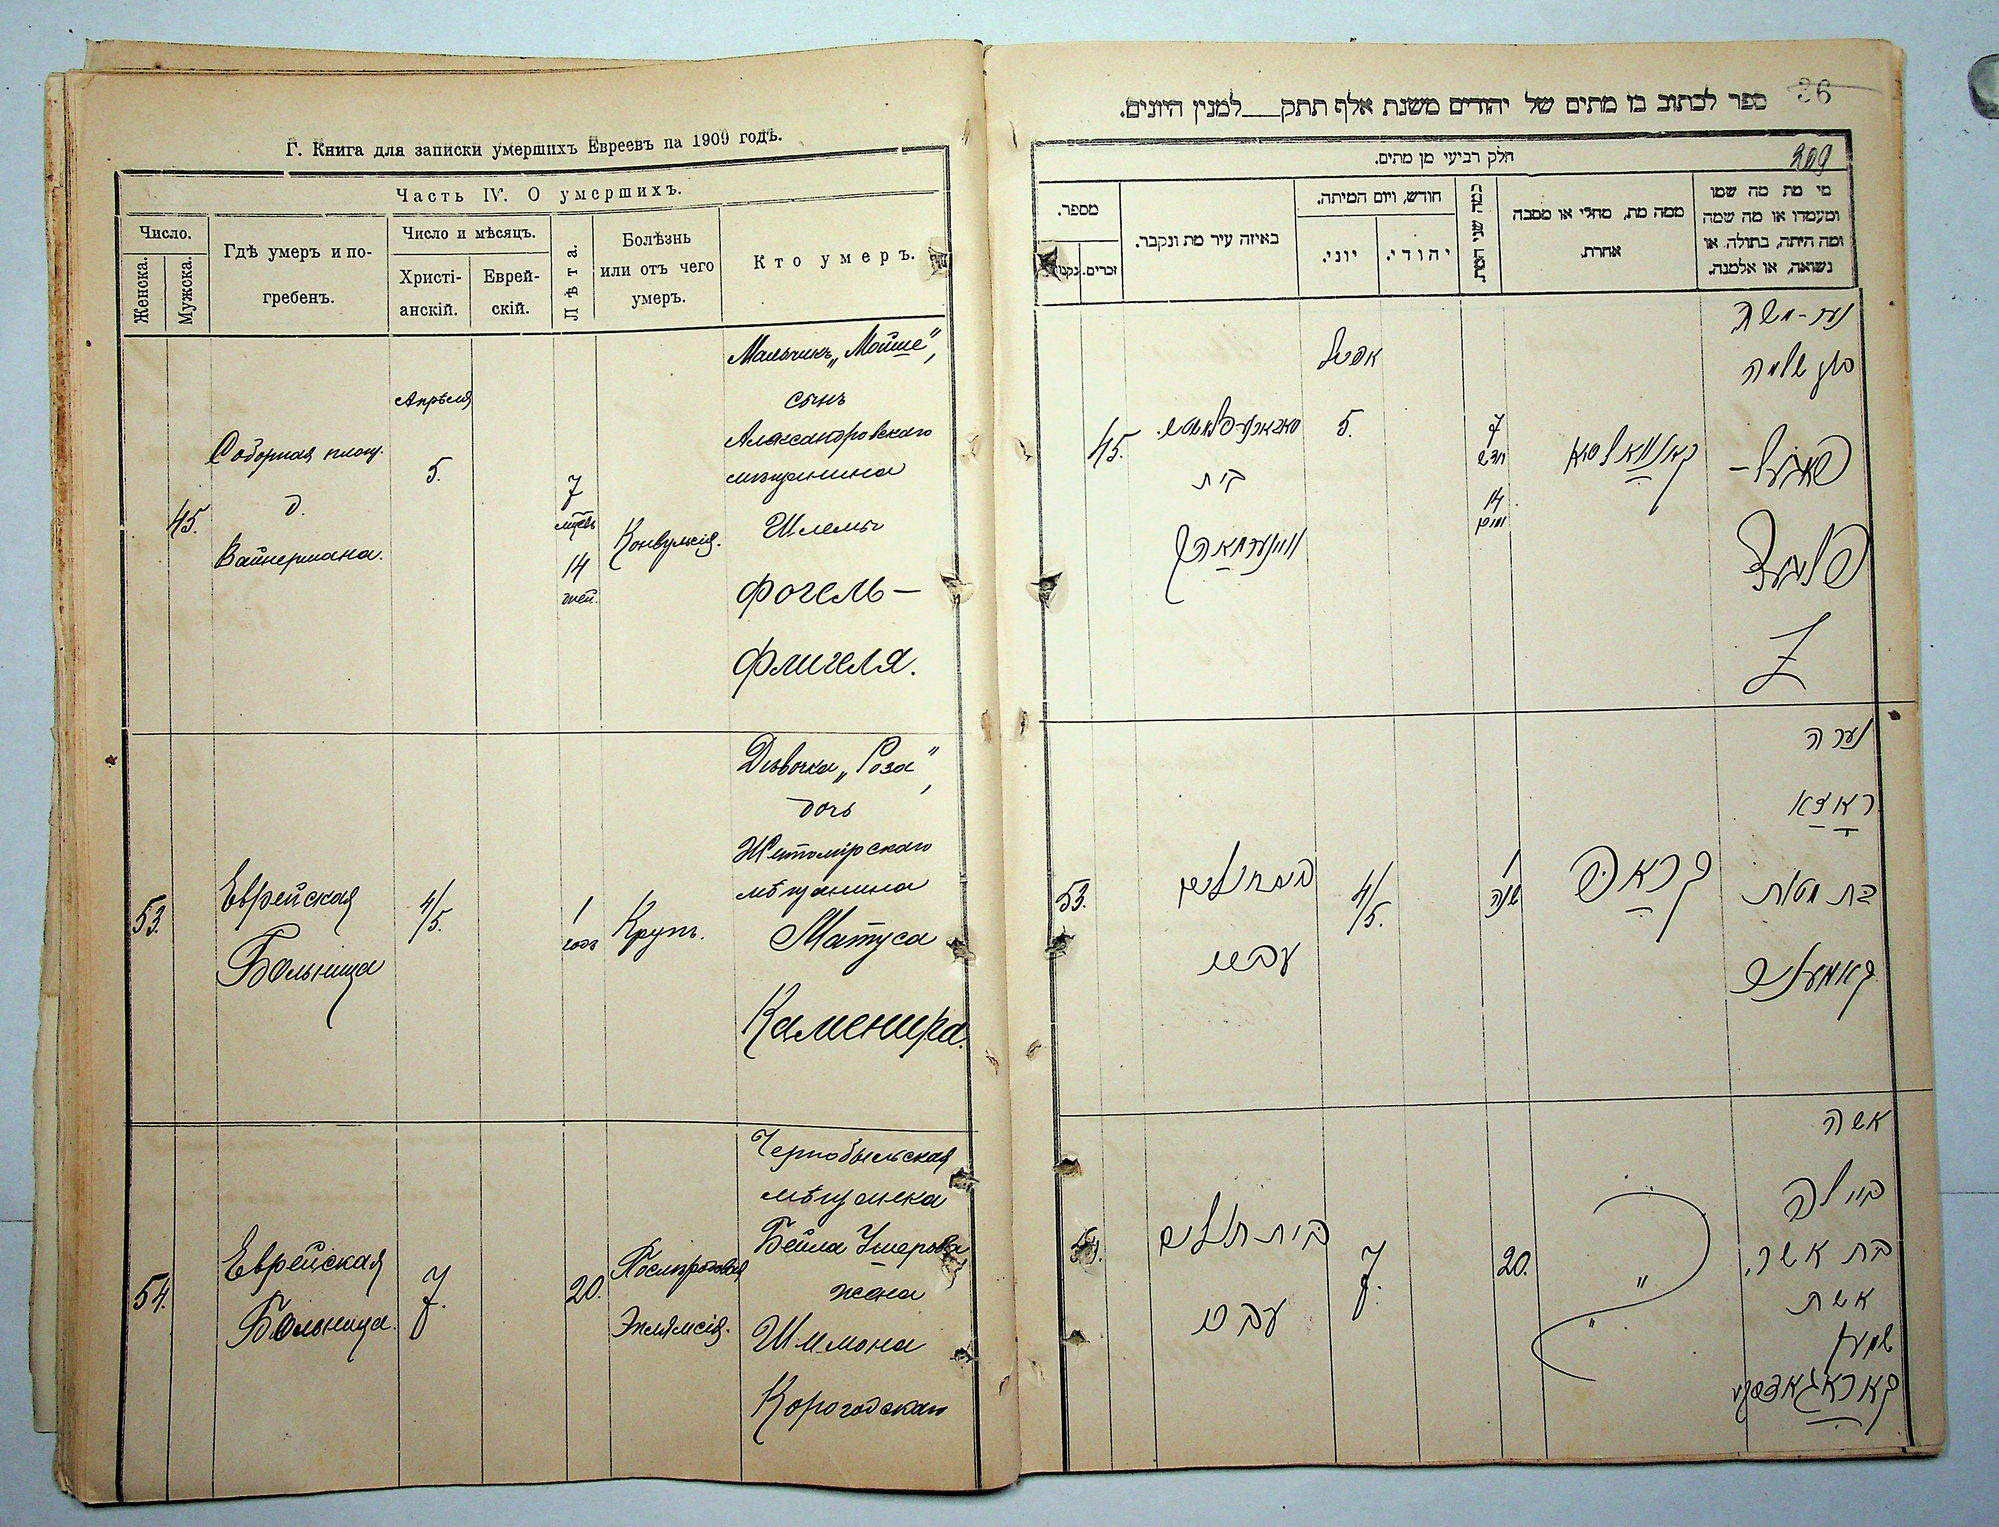 Г. Книга для записки умершихъ Евреевъ на 1909 годъ.
Часть IV. О умершихъ.
Число.
Женска.
Мужска.
Гдѣ умеръ и по-
гребенъ.
Число и мѣсяцъ.
Христі-
анскій.
Еврей-
скій.
Лѣта.
Болѣзнь
или отъ чего
умеръ.
Кто умеръ.
45.
Соборная площ.
д.
Вайнермана.
Апрѣля
5.
7
мѣс.
14
дней.
Конвульсія.
Мальчикъ „Мойше",
сынъ
Александровскаго
мѣщанина
Шлемы
Фогель-
Флигеля.
53.
Еврейская
Больница
4/5.
1
годъ
Крупъ.
Дѣвочка „Роза",
дочь
Житомірскаго
мѣщанина
Матуса
Каменира.
54.
Еврейская
Больница.
7.
20.
Послеродовая
Эклямсія.
Чернобыльская
мѣщанка
Бейла Ушерова
жена
Шимона
Корогодскаго
36
ספר לכתוב בו מתים של יהודים משנת אלף תתק___למנין היונים.
חלק רביעי מן מתים.
209
מספר.
זכרים.
באיזה עיר מת ונקבר.
חודש, ויום המיתה.
יוני.
יהודי.
כמה שני המת.
ממה מת, מחלי או מסבה
אחרת.
מי מת מה שמו
ומעמדו או מה שמה
ומה היתה, בתולה, או
נשואה, או אלמנה.
45.
בית
וויינערמאן
אפריל
5.
7
חדש
14
קאנוואלסיא
נער משה
בן שלמה
פאגעל-
פליגעל
53.
4/5.
1
שנה
קראפ
נערה
ראזא
בת מטות
קאמעניר
54.
בית חולים
7.
20.
"
"
"
אשה
ביילה
בת אשר,
אשת
שמעון
קאראגאדסקי